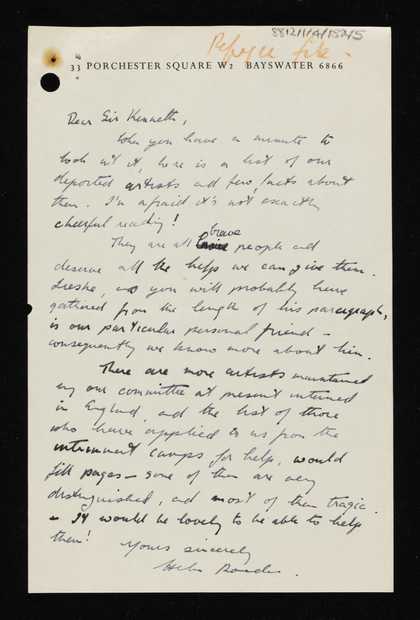 8812/1/4/150/5
Refugee file -
33 PORCHESTER SQUARE W2 BAYSWATER 6866
Dear Sir Kenneth,
When you have a minute to
look at it, here is a list of our
deported artists and few facts about
them. I'm afraid it's not exactly
cheerful reading!
They are all brave people and
deserve all the help we can give them.
as you will probably have
gathered from the length of his paragraph,
is our particular personal friend -
consequently we know more about him.
There are more artists maintained
by our committee at present interned
in England, and the list of those
who have applied to us from the
internment camps for help, would
fill pages - some of them are very
distinguished, and most of them tragic.
- It would be lovely to be able to help
them!
Yours sincerely